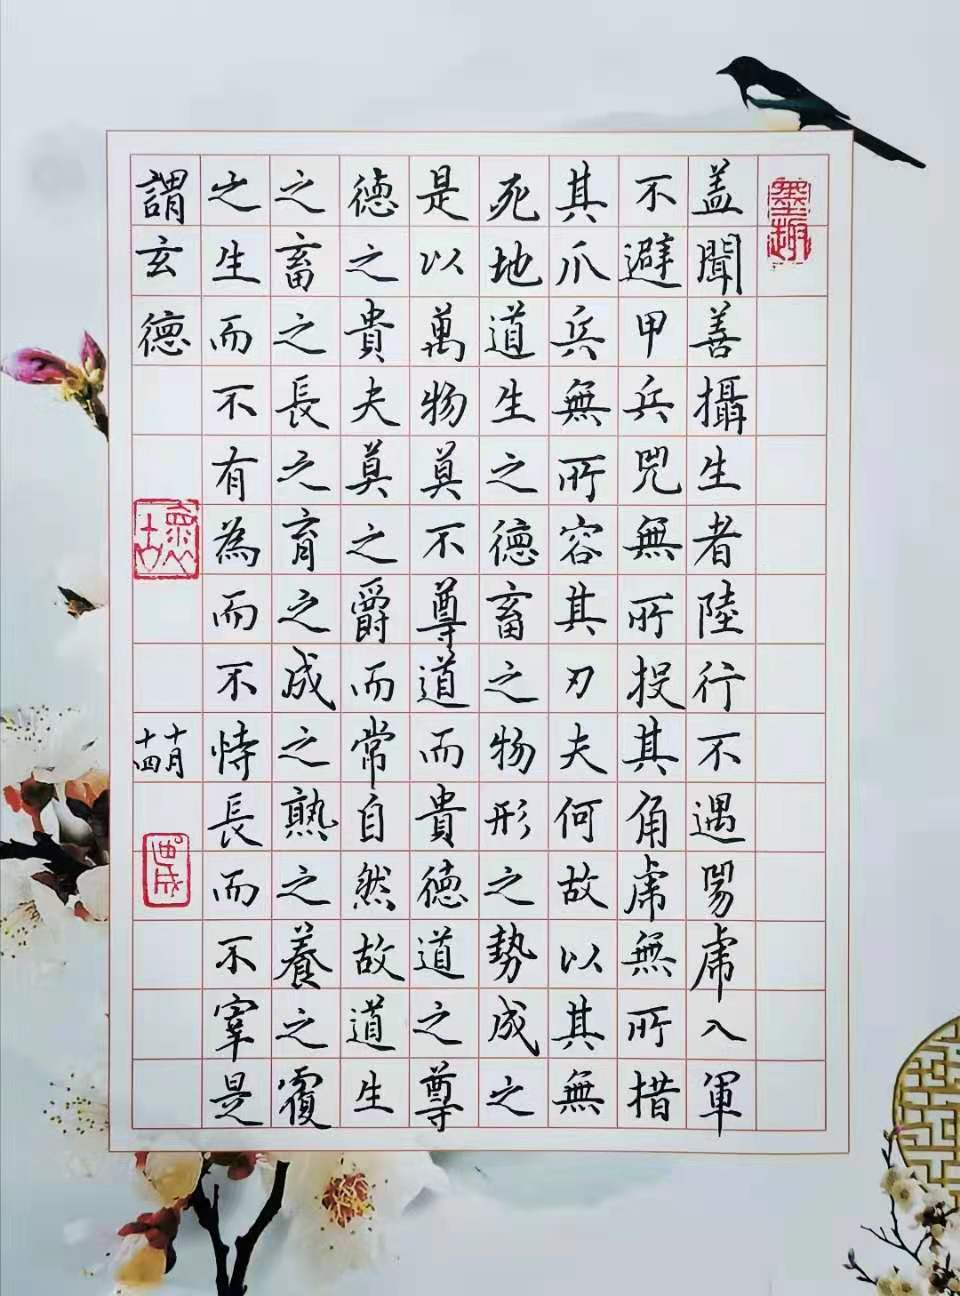 墨趣
盖聞善攝生者陸行不遇兕虎入軍
不避甲兵兕無所投其角虎無所措
其爪兵無所容其刃夫何故以其無
死地道生之德畜之物形之勢成之
是以萬物莫不尊道而貴德道之尊
德之貴夫莫之爵而常自然故道生
之畜之長之育之成之熟之養之覆
之生而不有為而不恃長而不宰是
謂玄德
十月
十四